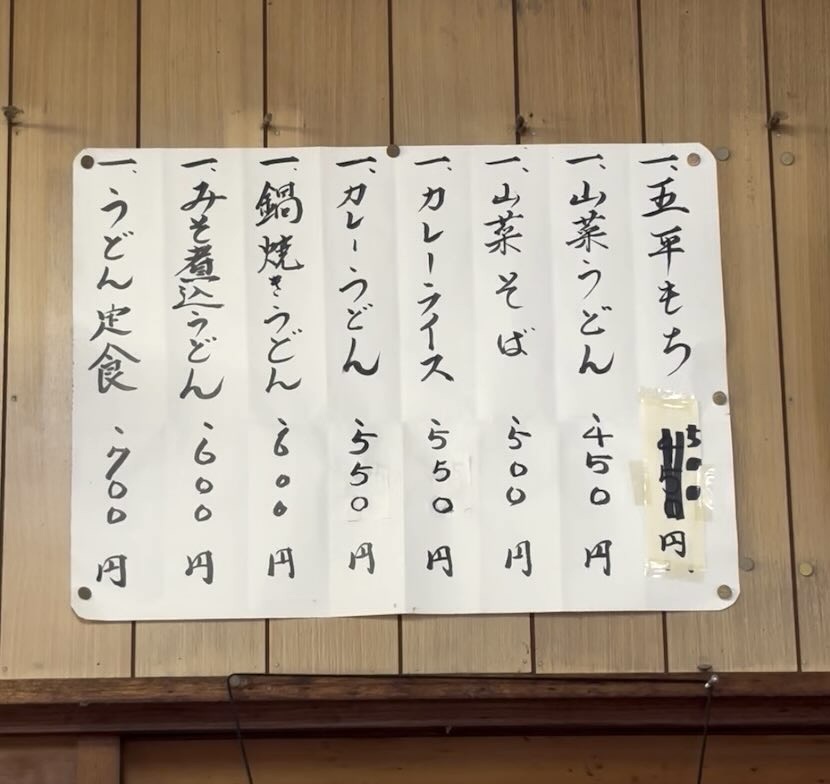 一、五平もち 500円
一、山菜うどん 450円
一、山菜そば 500円
一、カレーライス 550円
一、カレーうどん 550円
一、鍋焼きうどん 600円
一、みそ煮込うどん 600円
一、うどん定食 700円